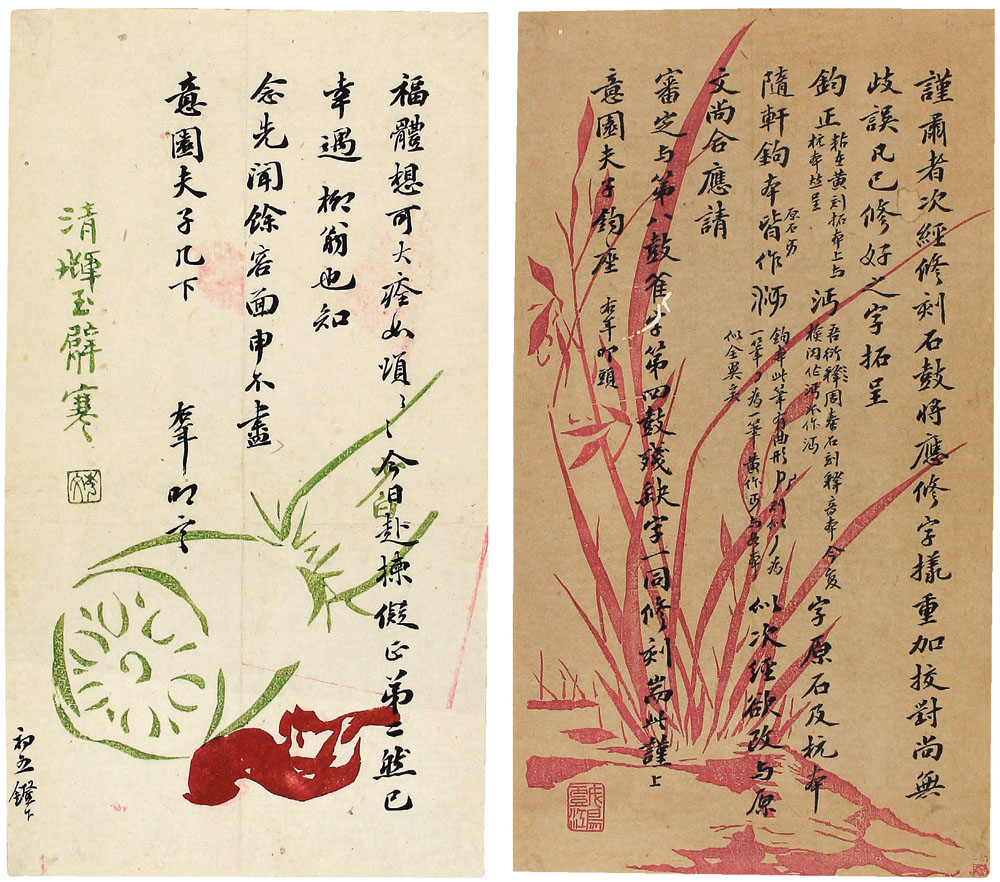 謹肅者次經修刻石鼓將應修字樣重加挍對尚無
歧誤凡已修好之字拓呈
鈞正
粘在黃刻拓本上与
杭本竝呈
沔
吾衍釋周秦石刻釋音本
字原石及杭本
隨軒鉤本皆作
原石
鉤本此筆有曲形
一筆
為一筆黃作
似全異矣
似次經欲改与原
文尚合應請
審定与第八鼓隹字第四鼓殘缺字一同修刻耑此謹上
意園夫子鈞座
叩頭
福體想可大痊如頌〻今日赴揀儗正第二然已
幸遇柳翁也知
念先聞餘容面申不盡
意園夫子几下
叩言
初五鐙下
清暉玉臂寒